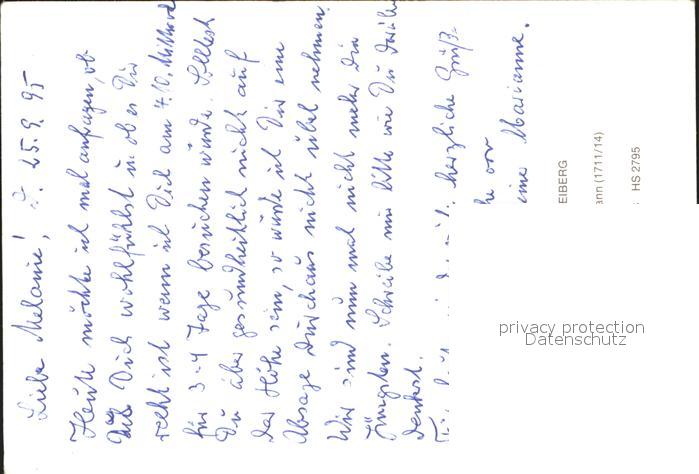 Liebe Melanie! 25.9.95
Heute möchte ich mal anfragen, ob
Du Dich wohlfühlst u. ob es Dir
recht ist wenn ich Dich am 4.10. Mittwoch
für 3-4 Tage besuchen würde. Solltest
Du aber gesundheitlich nicht auf
der Höhe sein, so würde ich Dir eine
Absage durchaus nicht übel nehmen.
Wir sind nun mal nicht mehr die
Jüngsten. Schreibe mir bitte wie Du darüber
denkst.
herzliche Grüße
he von
einer Marianne.
EIBERG
ann (1711/14)
HS 2795
privacy protection
Datenschutz